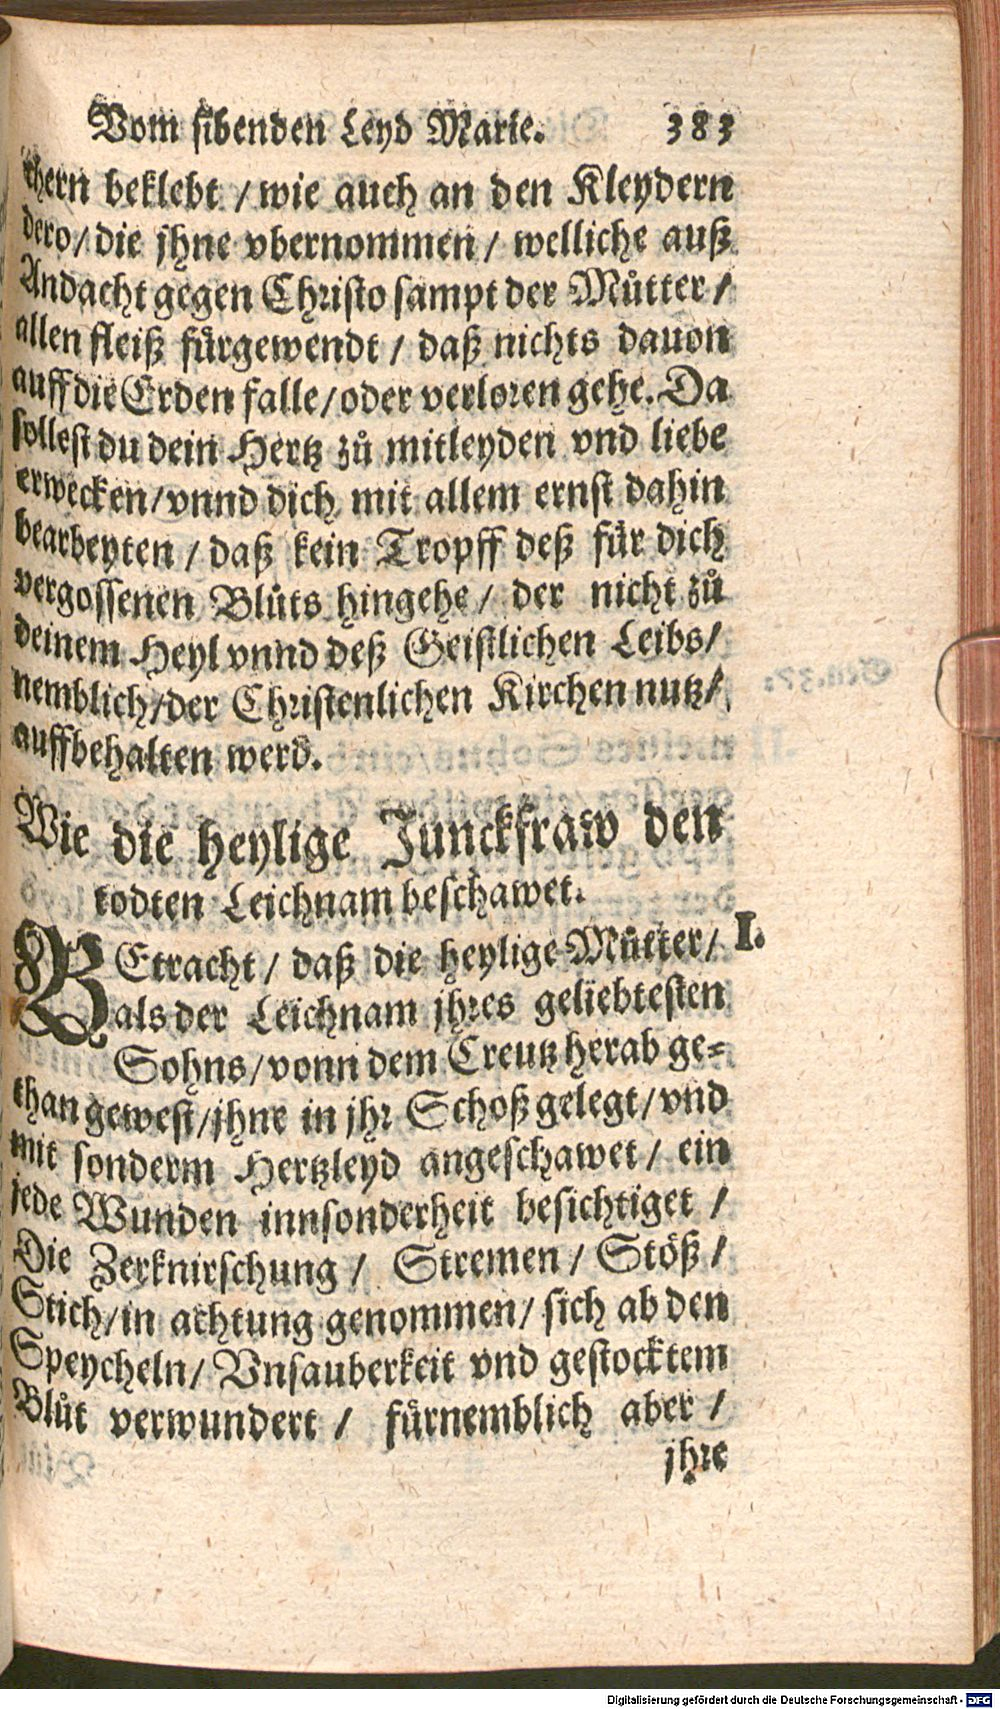 Vom sibenden Leyd Marie. 383
chern beklebt / wie auch an den Kleydern
dero / die jhne vbernommen / welliche auß
Andacht gegen Christo sampt der Můtter /
allen fleiß fürgewendt / daß nichts dauon
auff die Erden falle / oder verloren gehe. Da
sollest du dein Hertz zů mitleyden vnd liebe
erwecken / vnnd dich mit allem ernst dahin
bearbeyten / daß kein Tropff deß für dich
vergossenen Blůts hingehe / der nicht zů
deinem Heyl vnnd deß Geistlichen Leibs /
nemblich / der Christenlichen Kirchen nutz /
auffbehalten werd.
Wie die heylige Junckfraw den
todten Leichnam beschawet.
BEtracht / daß die heylige Můtter / I.
als der Leichnam jhres geliebtesten
Sohns / vonn dem Creutz herab ge=
than gewest / jhne in jhr Schoß gelegt / vnd
mit sonderm Hertzleyd angeschawet / ein
jede Wunden innsonderheit besichtiget /
Die Zerknirschung / Stremen / Stöß /
Stich / in achtung genommen / sich ab den
Speycheln / Vnsauberkeit vnd gestocktem
Blůt verwundert / fürnemblich aber /
jhre
Digitalisierung gefördert durch die Deutsche Forschungsgemeinschaft - DFG